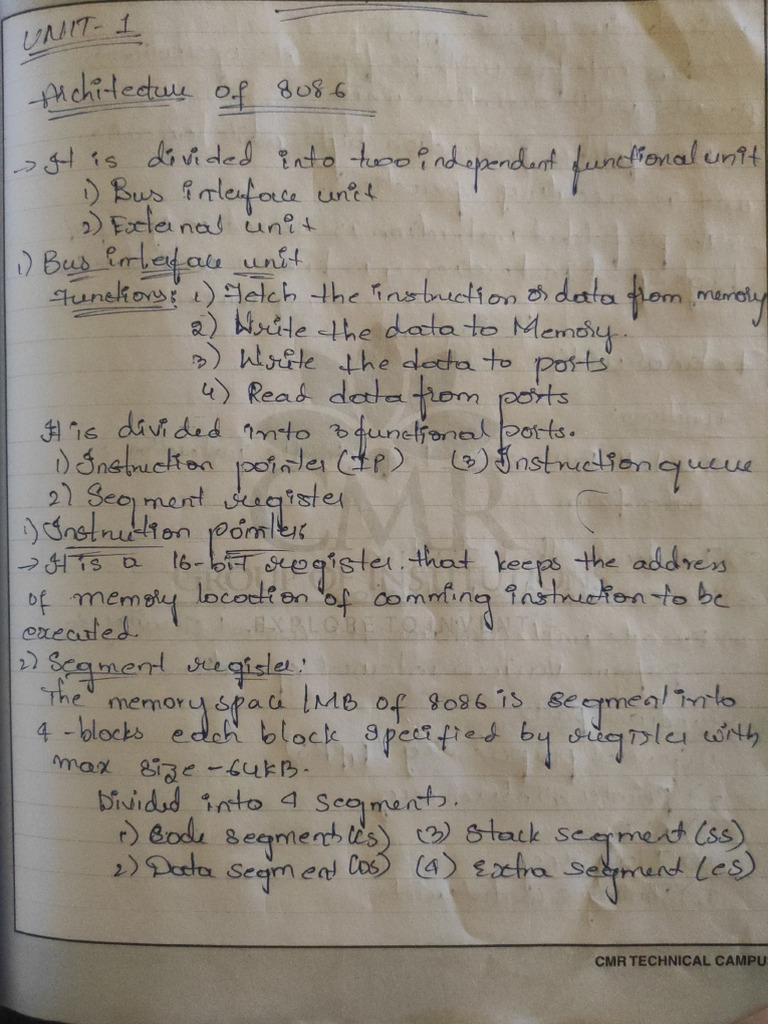 UNIT-1
Architecture of 8086
→ It is divided into two independent functional unit
1) Bus interface unit
2) External unit
1) Bus interface unit
Functions: 1) Fetch the instruction or data from memory
2) Write the data to Memory.
3) Write the data to ports
4) Read data from ports
It is divided into 3 functional ports.
1) Instruction pointer (IP) (3) Instruction queue
2) Segment register
1) Instruction pointer:
→ It is a 16-bit register. that keeps the address
of memory location of comming instruction to be
executed.
2) Segment register:
The memory space 1MB of 8086 is segment into
4-blocks each block specified by register with
max size -64KB.
Divided into 4 segments.
1) Code segment (CS) (3) Stack segment (SS)
2) Data segment (DS) (4) Extra segment (ES)
CMR
GROUP OF INSTITUTIONS
EXPLORE TO INVENT
CMR TECHNICAL CAMPU